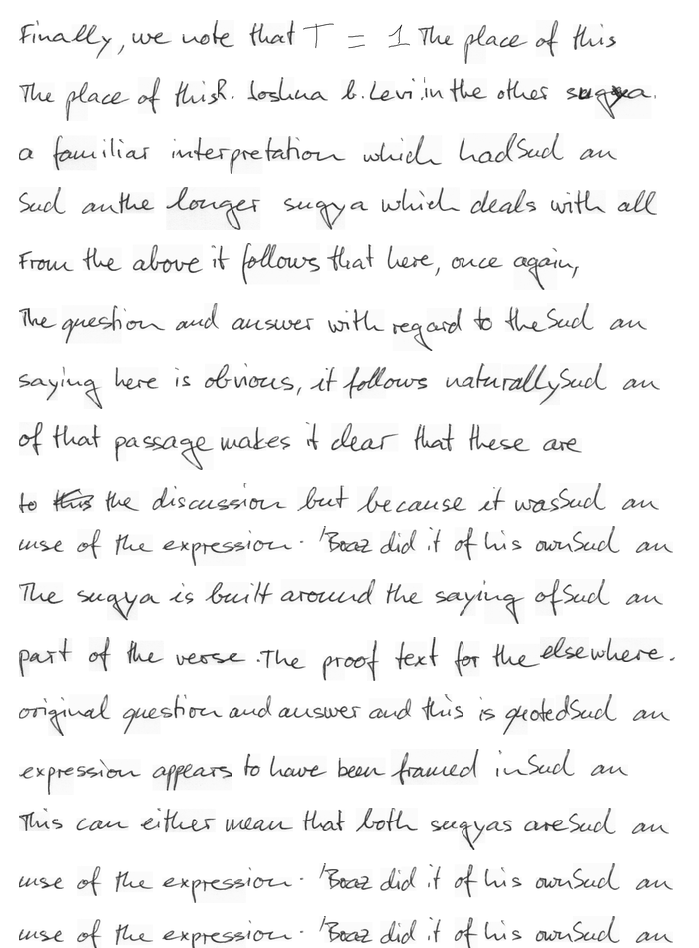 Finally, we note that T = 1 The place of this
The place of thisR. Joshua b. Levi in the other sugya.
a familiar interpretation which hadSud an
Sud anthe longer sugya which deals with all
From the above it follows that here, once again,
The question and answer with regard to theSud an
saying here is obvious, it follows naturallySud an
of that passage makes it clear that these are
to this the discussion but because it wasSud an
use of the expression. 'Boaz did it of his ownSud an
The sugya is built around the saying ofSud an
part of the verse. The proof text for the elsewhere.
original question and answer and this is quotedSud an
expression appears to have been framed inSud an
This can either mean that both sugyas areSud an
use of the expression. 'Boaz did it of his ownSud an
use of the expression. 'Boaz did it of his ownSud an